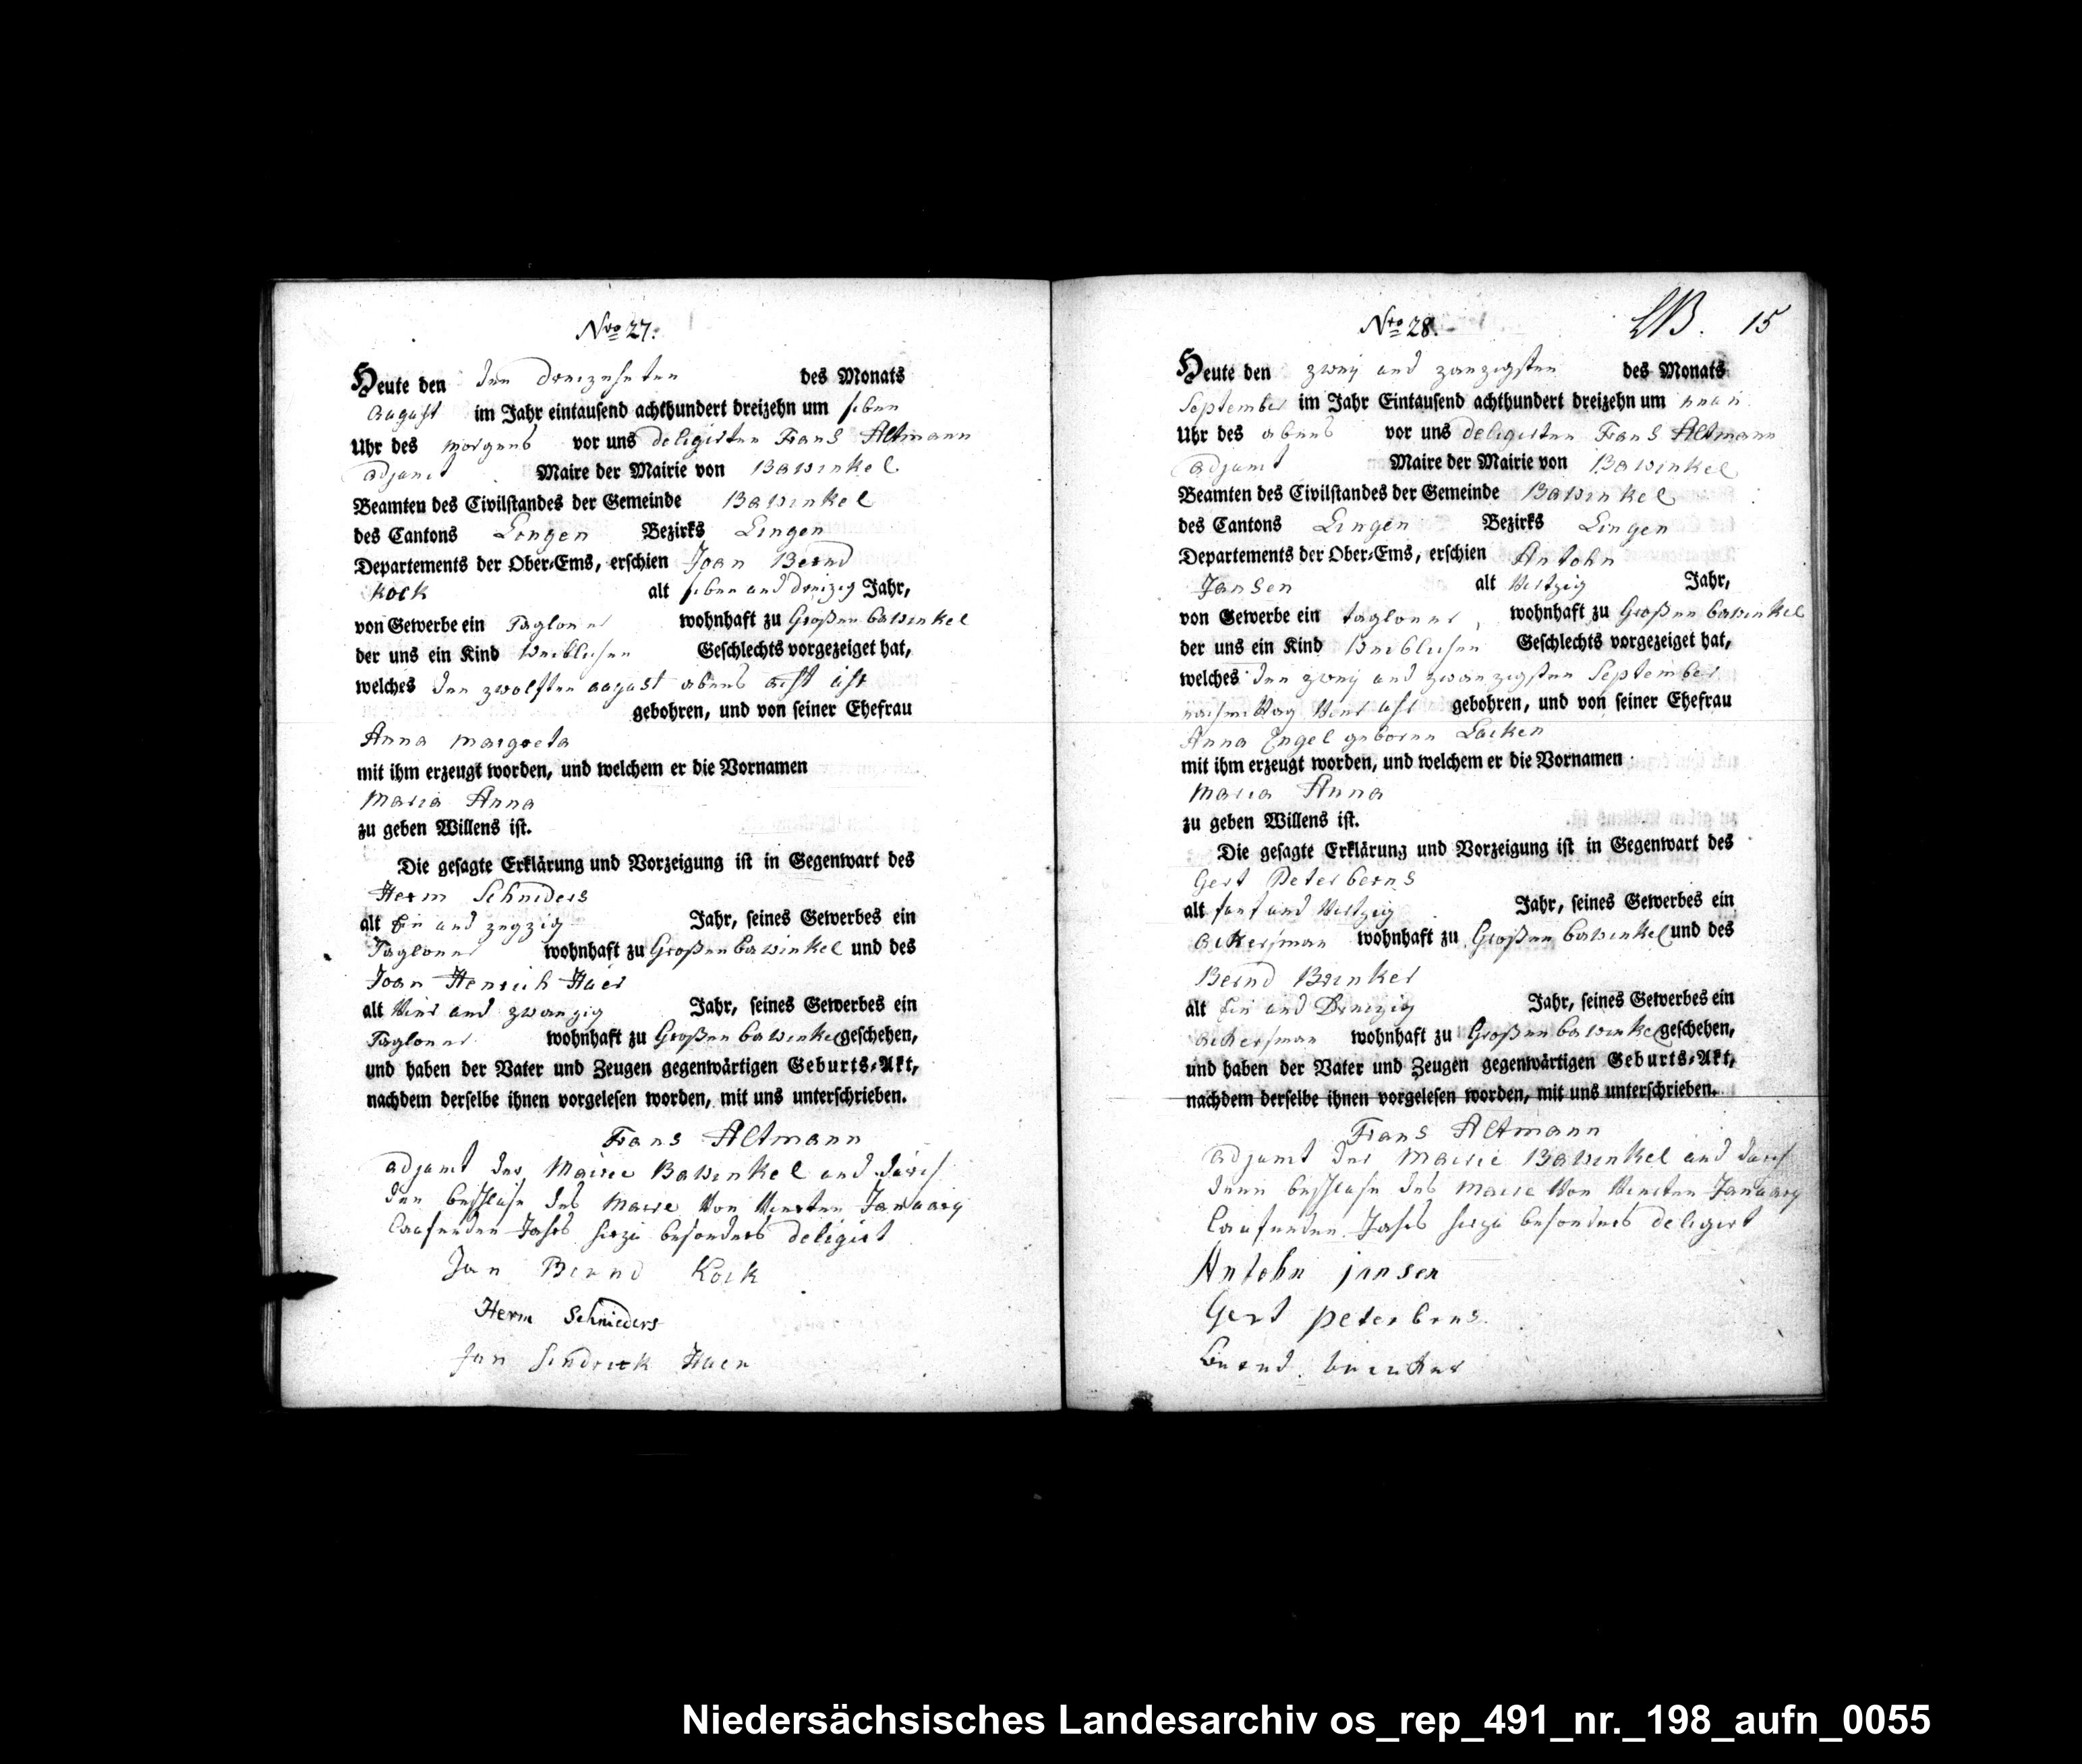 Nro 27.
Heute den den dreizehnten des Monats
august im Jahr eintausend achthundert dreizehn um sieben
Uhr des morgens vor uns deligirten Frans Altmann
adjunct Maire der Mairie von Bawinkel
Beamten des Civilstandes der Gemeinde Bawinkel
des Cantons Lingen Bezirks Lingen
Departements der Ober-Ems, erschien Joan Bernd
Kock alt sieben und dreizig Jahr,
von Gewerbe ein Tagloner wohnhaft zu Großen bawinkel
der uns ein Kind Weiblichen Geschlechts vorgezeiget hat,
welches den zwolften august abens acht uhr
gebohren, und von seiner Ehefrau
Anna margreta
mit ihm erzeugt worden, und welchem er die Vornamen
Maria Anna
zu geben Willens ist.
Die gesagte Erklärung und Vorzeigung ist in Gegenwart des
Herm Schnieders
alt Ein und Jahr, seines Gewerbes ein
Tagloner wohnhaft zu Großen bawinkel und des
Joan Henrich Huer
alt Vier und zwanzig Jahr, seines Gewerbes ein
Tagloner wohnhaft zu Großen bawinkel geschehen,
und haben der Vater und Zeugen gegenwärtigen Geburts-Akt,
nachdem derselbe ihnen vorgelesen worden, mit uns unterschrieben.
Frans Altmann
adjunct der Mairie Bawinkel und durch
den beschluss des Maire Von Viersten Januarÿ
laufenden Jahrs hirzu besonders deligirt
Jan Bernd Kock
Herm Schnieders
Jan Hendrick Huer
Nto 28. 15
Heute den zweÿ und zwanzigsten des Monats
September im Jahr Eintausend achthundert dreizehn um neun
Uhr des abens vor uns deligirten Frans Altmann
adjunct Maire der Mairie von Bawinkel
Beamten des Civilstandes der Gemeinde Bawinkel
des Cantons Lingen Bezirks Lingen
Departements der Ober-Ems, erschien Antohn
Jansen alt Viertzig Jahr,
von Gewerbe ein tagloner, wohnhaft zu Großen bawinkel
der uns ein Kind Weiblichen Geschlechts vorgezeiget hat,
welches den zweÿ und zwanzigsten September
nachmittag Vier uhr gebohren, und von seiner Ehefrau
Anna Engel geboren Lücken
mit ihm erzeugt worden, und welchem er die Vornamen
Maria Anna
zu geben Willens ist.
Die gesagte Erklärung und Vorzeigung ist in Gegenwart des
Gert Peterberns
alt funf und Viertzig Jahr, seines Gewerbes ein
Ackersman wohnhaft zu Großen bawinkel und des
Bernd Brinker
alt Ein und Dreizig Jahr, seines Gewerbes ein
Ackersman wohnhaft zu Großen bawinkel geschehen,
und haben der Vater und Zeugen gegenwärtigen Geburts-Akt,
nachdem derselbe ihnen vorgelesen worden, mit uns unterschrieben.
Frans Altmann
adjunct der Mairie Bawinkel und durch
denn beschluss des Maire Von Viersten Januarÿ
laufenden Jahrs hirzu besonders deligirt
Antohn jansen
Gert peterbens
Bernd brinker
Niedersächsisches Landesarchiv os_rep_491_nr._198_aufn_0055